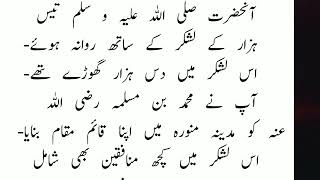 آنحضرت صلی اللہ علیہ و سلم تیس
ہزار کے لشکر کے ساتھ روانہ ہوئے-
اس لشکر میں دس ہزار گھوڑے تھے-
آپ نے محمد بن مسلمہ رضی اللہ
عنہ کو مدینہ منورہ میں اپنا قائم مقام بنایا-
اس لشکر میں کچھ منافقین بھی شامل